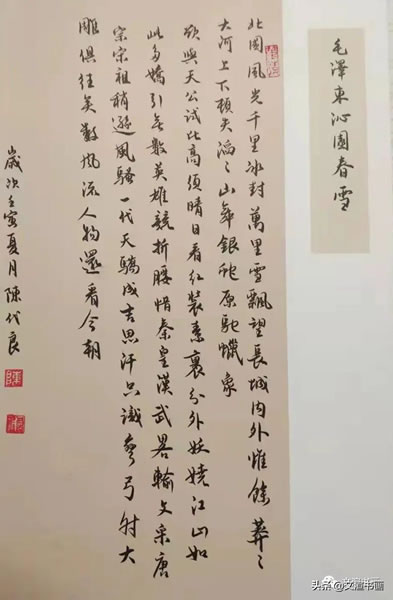 毛澤東沁園春雪
北國風光千里冰封萬里雪飄望長城內外惟餘莽〻
大河上下頓失滔〻山舞銀蛇原馳蠟象
欲與天公試比高須晴日看紅裝素裹分外妖嬈江山如
此多嬌引無數英雄競折腰惜秦皇漢武畧輸文采唐
宗宋祖稍遜風騷一代天驕成吉思汗只識彎弓射大
雕俱往矣數風流人物還看今朝
歲次壬寅夏月陳代良
头条 @文道书画